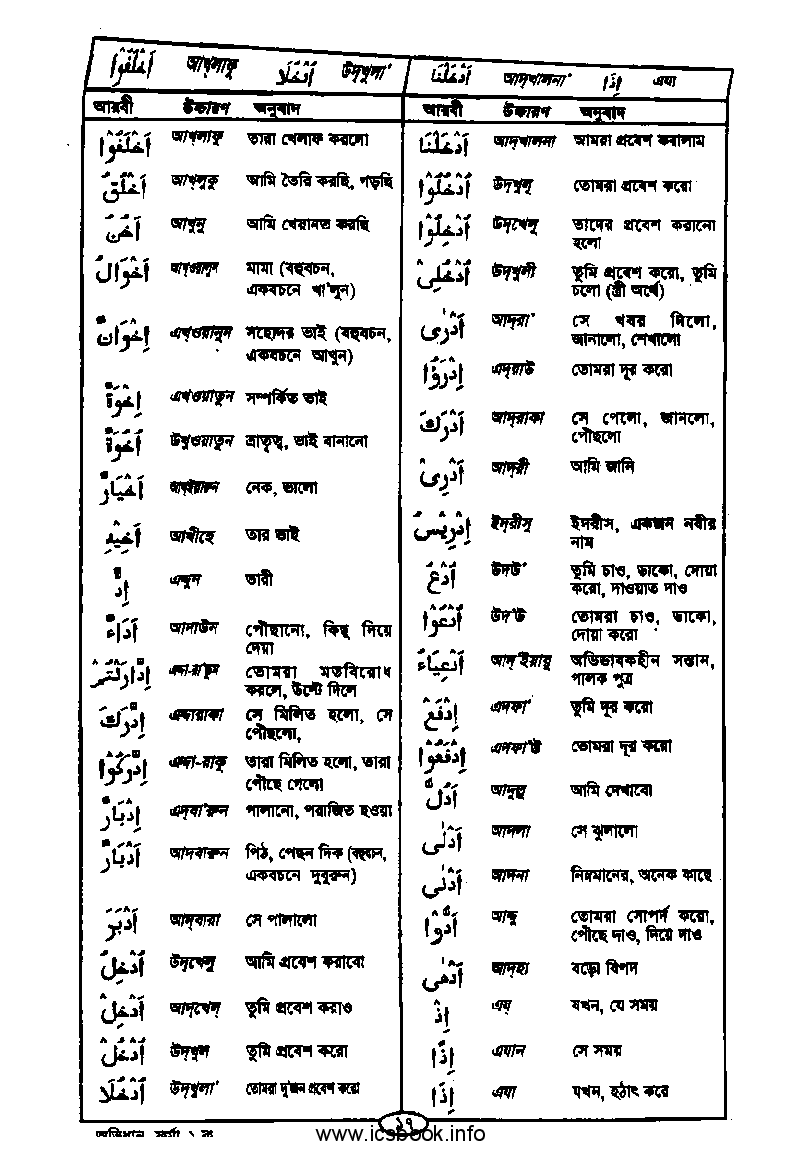 اَخْلَفُوْا আখ্‌লাফু اُدْخُلَا উদ্‌খুলা'
আরবী উচ্চারণ অনুবাদ
اَخْلَفُوْا আখ্‌লাফু তারা খেলাফ করলো
اَخْلُقُ আখ্‌লুকু আমি তৈরি করছি, গড়ছি
اَخُنْ আখুন্ আমি খেয়ানত করছি
اَخْوَالٌ আখ্‌ওয়ালুন মামা (বহুবচন,
একবচনে খা'লুন)
اِخْوَانٌ এখ্‌ওয়ানুন সহোদর ভাই (বহুবচন,
একবচনে আখুন)
اِخْوَةٌ এখ্‌ওয়াতুন সম্পর্কিত ভাই
اُخُوَّةٌ উখুওয়াতুন ভ্রাতৃত্ব, ভাই বানানো
اَخْيَارٌ আখ্‌ইয়ারুন নেক, ভালো
اَخِيْهِ আখীহে তার ভাই
اِدٌّ এদ্দুন ভারী
اَدَاءٌ আদাউন পৌছানো, কিছু দিয়ে
দেয়া
তোমরা মতবিরোধ
করলে, উল্টে দিলে
اِدّٰرَكَ এদ্দারাকা সে মিলিত হলো, সে
পৌছলো,
اِدَّارَكُوْا এদ্দা-রাকু তারা মিলিত হলো, তারা
পৌছে গেলো
اِدْبَارٌ এদ্‌বা'রুন পালানো, পরাজিত হওয়া
اَدْبَارٌ আদবারুন পিঠ, পেছন দিক (বহুবচন,
একবচনে দুবুরুন)
اَدْبَرَ আদ্‌বারা সে পালালো
اُدْخِلُ উদ্‌খেলু আমি প্রবেশ করাবো
اَدْخِلْ আদ্‌খেল্ তুমি প্রবেশ করাও
اُدْخُلْ উদ্‌খুল তুমি প্রবেশ করো
اُدْخُلَا উদ্‌খুলা' তোমরা দু'জন প্রবেশ করো
اَدْخَلْنَا আদ্‌খালনা' اِذَا এযা
আরবী উচ্চারণ অনুবাদ
اَدْخَلْنَا আদ্‌খালনা আমরা প্রবেশ করালাম
اُدْخُلُوْا উদ্‌খুলু তোমরা প্রবেশ করো
اُدْخِلُوْا উদ্‌খেলু তাদের প্রবেশ করানো
হলো
اُدْخُلِىْ উদ্‌খুলী তুমি প্রবেশ করো, তুমি
চলো (স্ত্রী অর্থে)
اَدْرٰى আদ্‌রা' সে খবর দিলো,
জানালো, শেখালো
اِدْرَؤُا এদ্‌রাউ তোমরা দূর করো
اَدْرَكَ আদ্‌রাকা সে পেলো, জানলো,
পৌছলো
اَدْرِىْ আদ্‌রী আমি জানি
اِدْرِيْسُ ইদরীসু ইদরীস, একজন নবীর
নাম
اُدْعُ উদ্‌উ' তুমি চাও, ডাকো, দোয়া
করো, দাওয়াত দাও
اُدْعُوْا উদ্‌'উ তোমরা চাও, ডাকো,
দোয়া করো
اَدْعِيَاءُ আদ্‌'ইয়ায়ু অভিভাবকহীন সন্তান,
পালক পুত্র
اِدْفَعْ এদফা' তুমি দূর করো
اِدْفَعُوْا এদফা'উ তোমরা দূর করো
اَدُلُّ আদুল্লু আমি দেখাবো
اَدْلٰى আদলা সে ঝুলালো
اَدْنٰى আদনা নিম্নমানের, অনেক কাছে
اَدُّوْا আদ্দু তোমরা সোপর্দ করো,
পৌছে দাও, দিয়ে দাও
اَدْهٰى আদ্‌হা বড়ো বিপদ
اِذْ এয্ যখন, যে সময়
اِذًا এযান সে সময়
اِذَا এযা যখন, হঠাৎ করে
১৭
www.icsbook.info